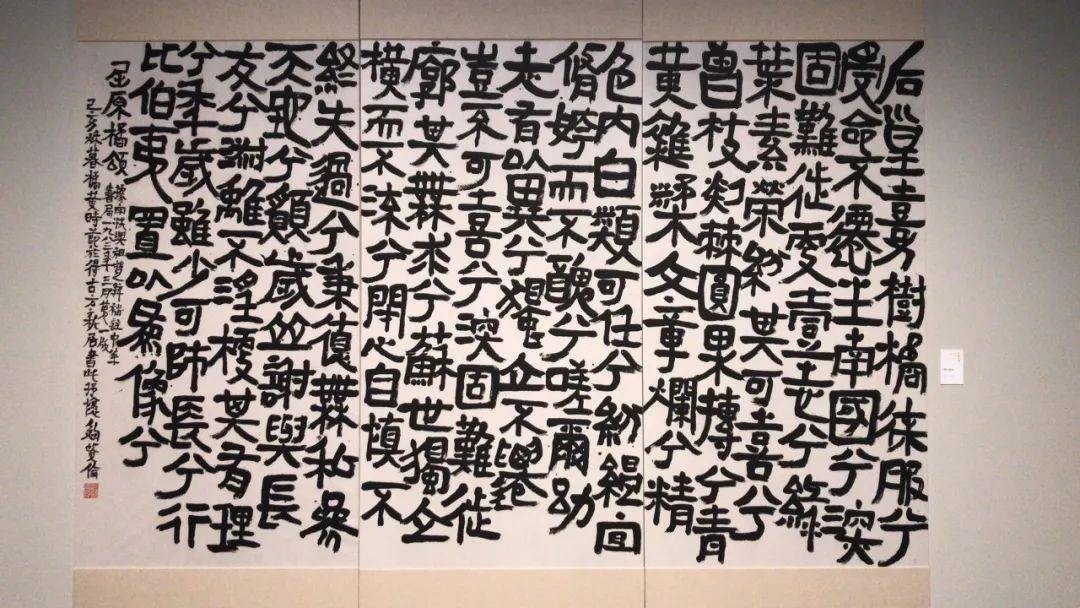 后皇嘉樹橘徠服兮
受命不遷生南國兮深
固難徙更壹志兮綠
葉素榮紛其可喜兮
曾枝剡棘圓果摶兮青
黄雜糅文章爛兮精
色内白類可任兮紛緼宜
脩姱而不醜兮嗟爾幼
志有以異兮獨立不遷
豈不可喜兮深固難徙
廓其無求兮蘇世獨立
横而不流兮閉心自慎不
終失過兮秉德無私參
天地兮願歲并謝與長
友兮淑離不淫梗其有理
兮年歲雖少可師長兮行
比伯夷置以爲像兮
屈原橘頌
書局一九八三年三月第一版
己亥秋暮橘黄時節於得古方